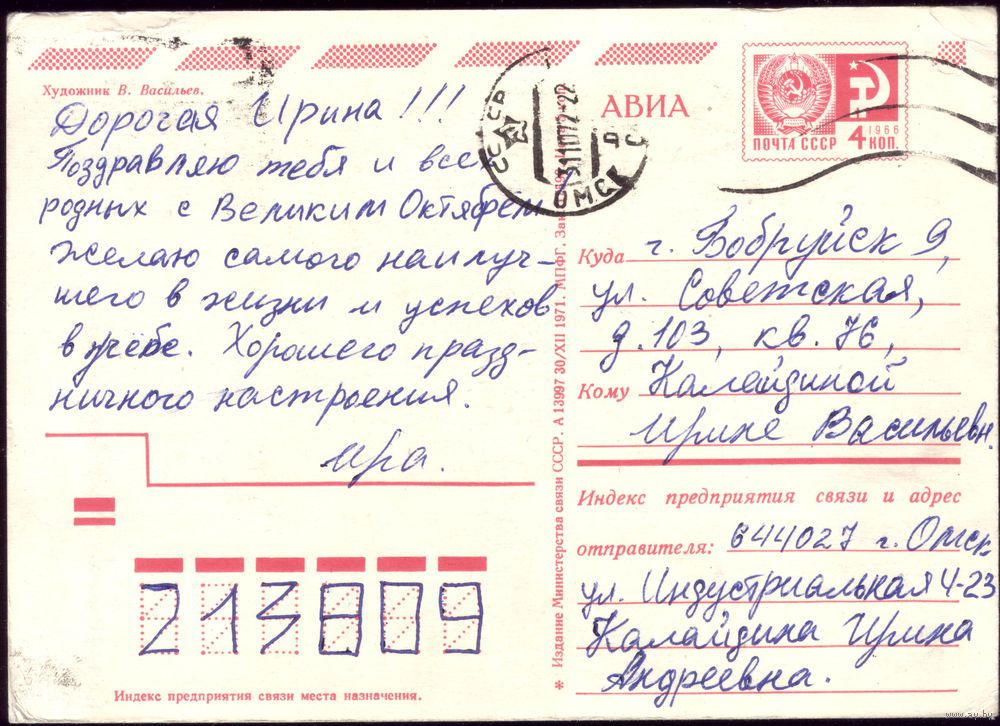 Художник В. Васильев.
Дорогая Ирина!!!
Поздравляю тебя и всех
родных с Великим Октябрем
желаю самого наилуч-
шего в жизни и успехов
в учёбе. Хорошего празд-
ничного настроения.
Ира.
213809
Индекс предприятия связи места назначения.
* Издание Министерства связи СССР. А 13997 30/XII 1971. МПФГ. Зак.
СССР
ОМСК
АВИА
1966
ПОЧТА СССР 4 КОП.
Куда г. Бобруйск 9,
ул. Советская,
д. 103, кв. 76,
Кому Калайдиной
Ирине Васильевн.
Индекс предприятия связи и адрес
отправителя: 644027 г. Омск
ул. Индустриальная 4-23
Калайдина Ирина
Андреевна.
www.ay.by